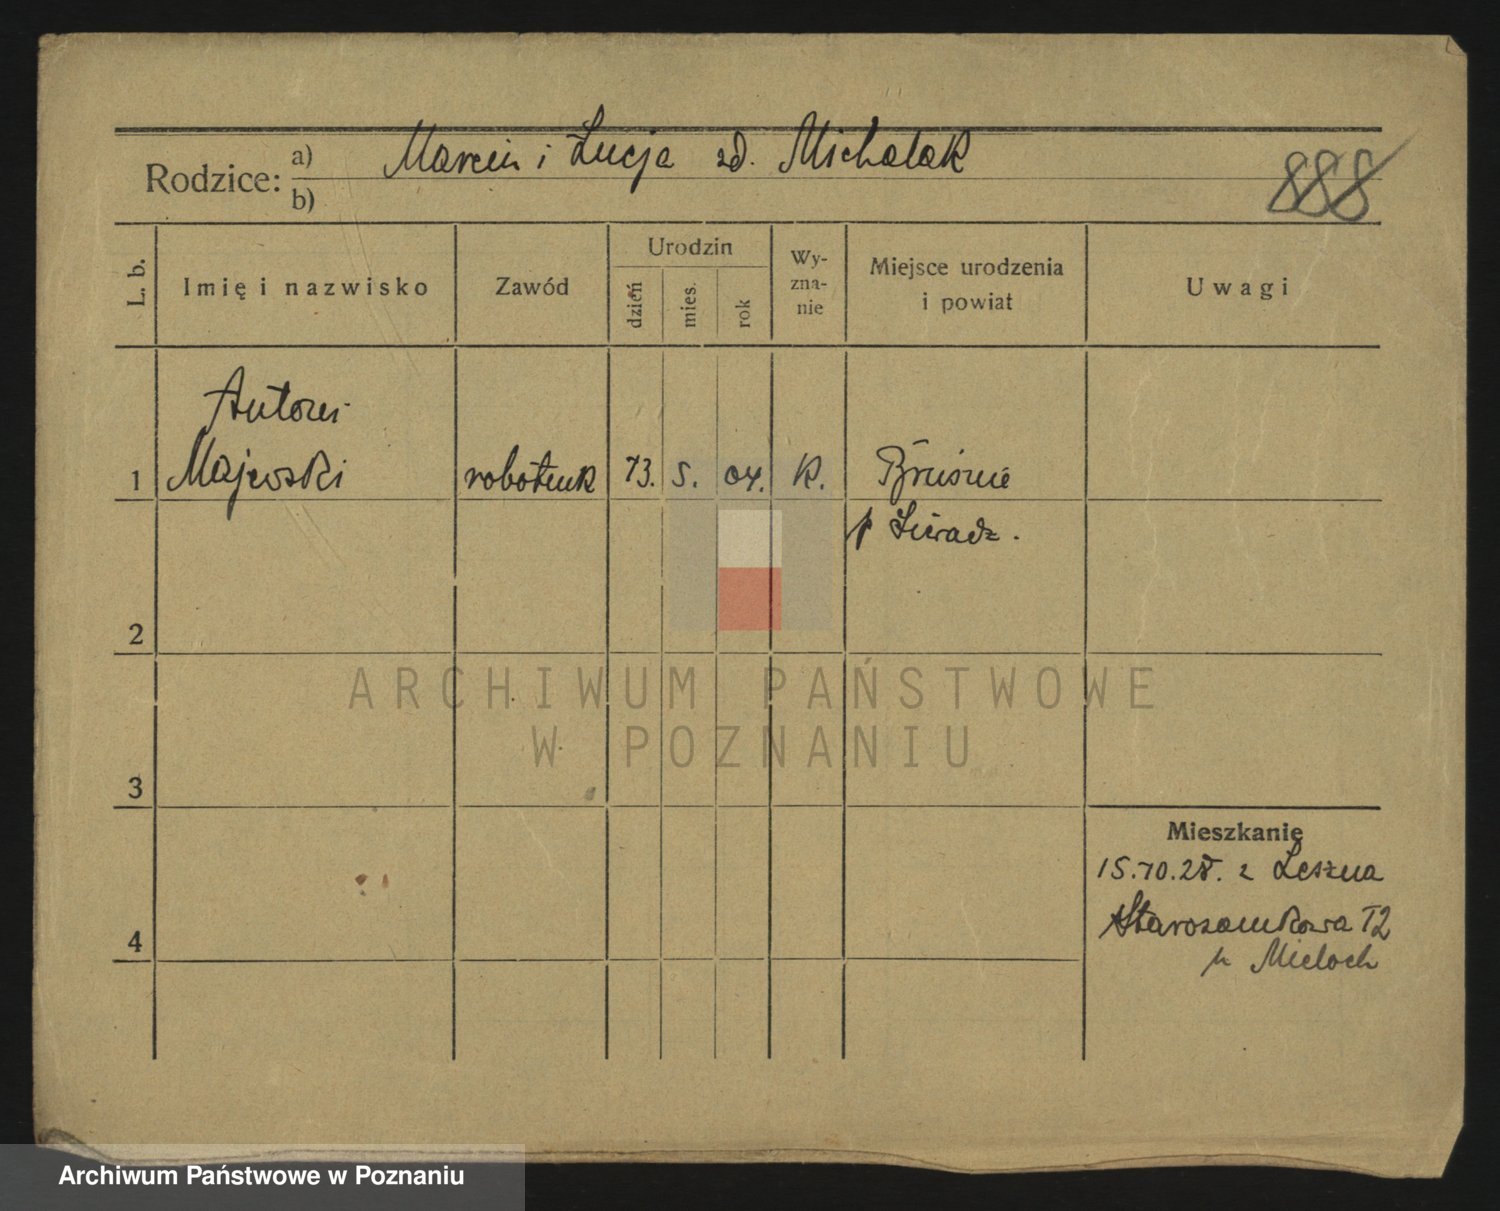 Rodzice: a) Marcin i Łucja zd. Michalak
b)
888
L. b.
Imię i nazwisko
Zawód
Urodzin
dzień
mies.
rok
Wy-
zna-
nie
Miejsce urodzenia
i powiat
Uwagi
Antoni
1 Majewski robotnik 13. 5. 04. K.
p Sieradz.
2
3
4
Mieszkanie
15.10.28. z Leszna
u Mieloch
ARCHIWUM PAŃSTWOWE
W POZNANIU
Archiwum Państwowe w Poznaniu